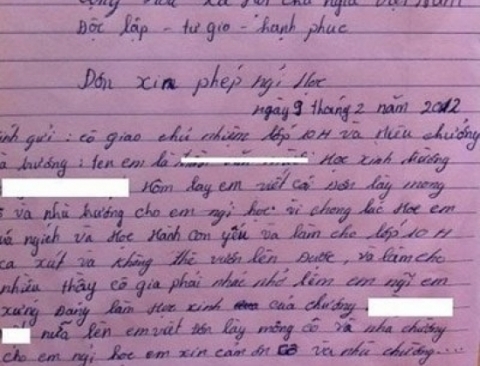 Độc lập - tự gio - hạnh phúc
Đơn xin phép nghỉ Học
ngày 9 tháng 2 năm 2012
gửi : cô giao chủ nhiệm lớp 10 H và Hiệu chưởng
trường : ten em là Học xinh trường
Hôm lay em viết cái Đơn lày mong
và nhà trường cho em ngỉ học vì chong lúc Học em
ngịch và Học Hành con yếu và làm cho lớp 10 H
xút và không thể vươn lên Được, và làm cho
nhiều thầy cô gia phải nhác nhở lên em ngĩ em
xứng Đáng làm Học xinh của chường
nữa lên em viết đơn lày mông cô và nhà chường
cho em ngỉ học em xin cảm ơn cô và nhà chường....